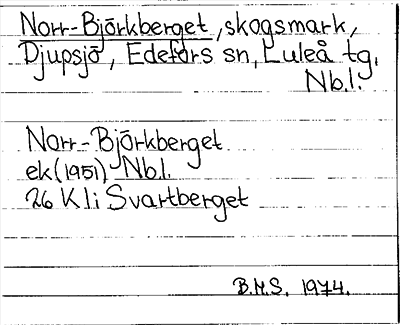 Norr-Björkberget, skogsmark,
Djupsjö, Edefors sn, Luleå tg.
Nb.l.
Norr-Björkberget
ek (1951) Nb.l.
26 K li Svartberget
B.M.S. 1974.